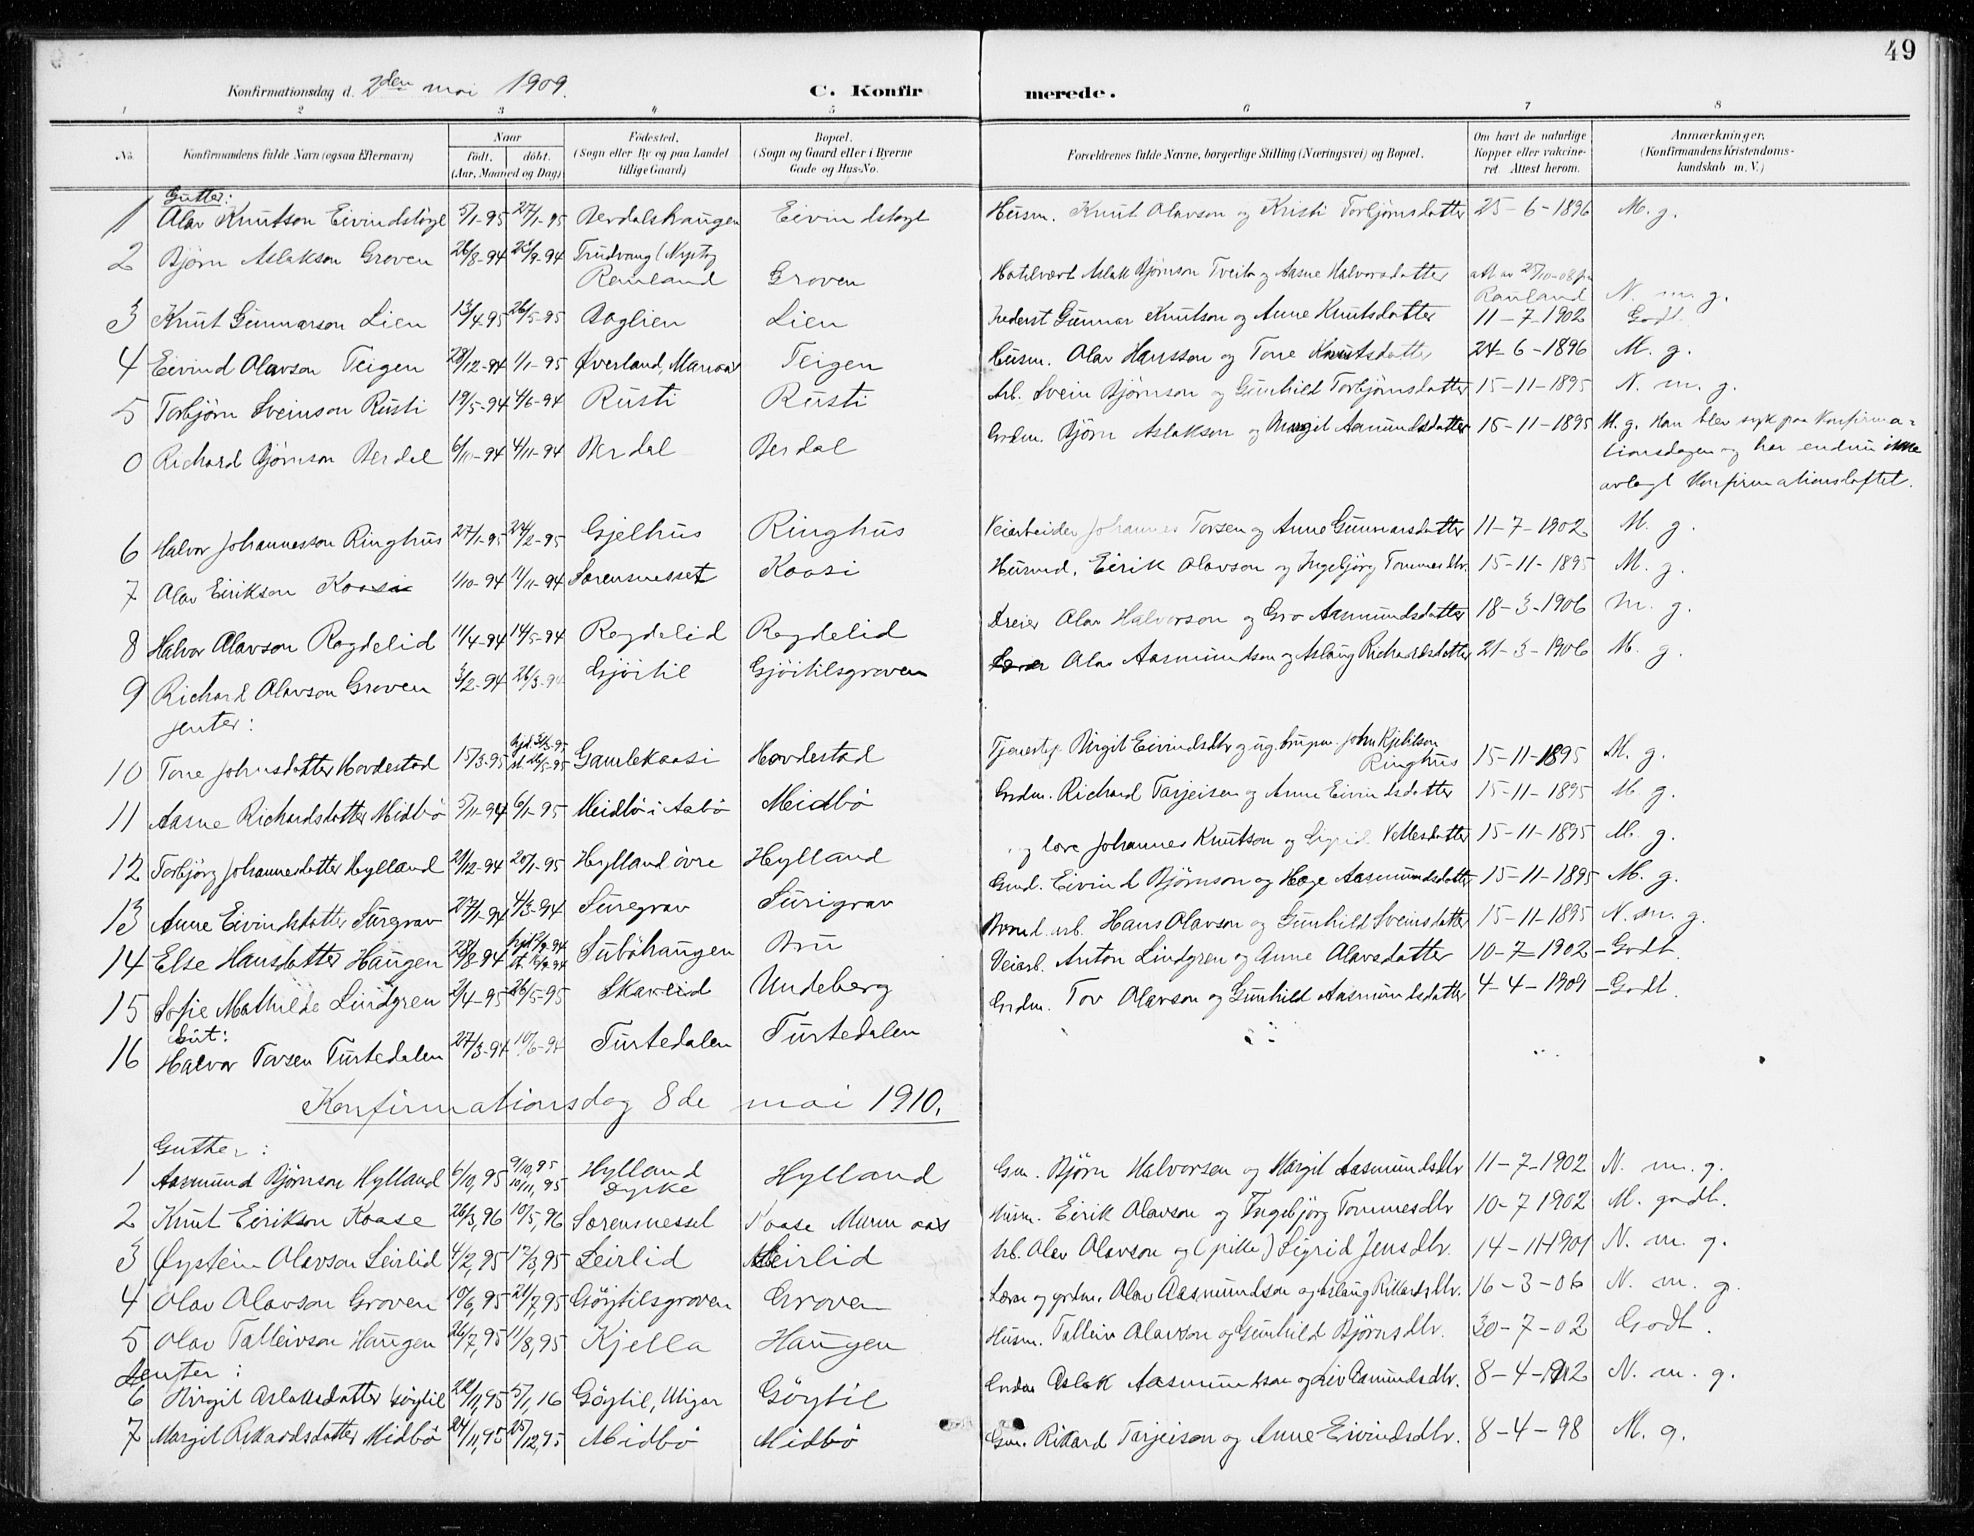 49
Konfirmationsdag d. 2den mai 1909.
C. Konfirmerede.
1 2 3 4 5 6 7 8
No.
Konfirmandens fulde Navn (ogsaa Efternavn)
Naar
födt. döbt.
(Aar, Maaned og Dag)
Födested.
(Sogn eller By og paa Landet tillige Gaard)
Bopæl.
(Sogn og Gaard eller i Byerne Gade og Hus-No.
Forældrenes fulde Navne, borgerlige Stilling (Næringsvei) og Bopæl.
Om havt de naturlige Kopper eller vakcineret. Attest herom.
Anmærkninger.
(Konfirmandens Kristendomskundskab m. V.)
Gutter:
1 Olav Knutson Eivindstøyl 5/1-95 27/1-95 Berdalshaugen Eivindstøyl Husm. Knut Olavson og Kristi Torbjørnsdatter 25-6-1896 M. g.
2 Bjørn Aslakson Groven 26/8-94 23/9-94 Trudvang (Nystog Rauland Groven Hotelvært Aslak Bjørnson Tveito og Aasne Halvorsdatter att av 27/10-08 fra Rauland N. m. g.
3 Knut Gunnarson Lien 13/4-95 26/5-95 Boglien Lien Inderst Gunnar Knutson og Anne Knutsdatter 11-7-1902 Godt
4 Eivind Olavson Teigen 28/12-94 1/1-95 Øverland, Teigen Husm. Olav Hansson og Tone Knutsdatter 24-6-1896 M. g.
5 Torbjørn Sveinson Rusti 19/5-94 4/6-94 Rusti Rusti Arb. Svein Bjørnson og Gunhild Torbjørnsdatter 15-11-1895 N. m. g.
0 Richard Bjørnson Berdal 6/10-94 4/11-94 Berdal Berdal Grdm. Bjørn Aslakson og Margit Aamundsdatter 15-11-1895 M. g. Han blev syk paa Konfirma-
tionsdagen og har endnu ikke
avlagt Konfirmationsløftet.
6 Halvor Johannesson Ringhus 27/1-95 24/2-95 Gjelhus Ringhus Veiarbeider Johannes Torsen og Anne Gunnarsdatter 11-7-1902 M. g.
7 Olav Eirikson Koasi 1/10-94 11/11-94 Sørensnesset Koasi Husmd. Eirik Olavson og Ingebjørg Tommesdtr. 15-11-1895 M. g.
8 Halvor Olavson Rogdelid 11/4-94 14/5-94 Rogdelid Rogdelid Dreier Olav Halvorson og Gro Aasmundsdatter 18-3-1906 M. g.
9 Richard Olavson Groven 3/2-94 26/3-94 Gjöitil Gjöitilsgroven Lærer Olav Aasmundson og Aslaug Richardsdatter 21-3-1906 M. g.
Jenter:
10 Tone Johnsdatter Hovdestad 15/3-95 hjd. 31/3-95, st. 26/5-95 Gamlekoasi Hovdestad Tjenestep. Birgit Eivindsdtr og ug. John Kjetilson Ringhus 15-11-1895 M. g.
11 Aasne Richardsdatter Midbö 5/11-94 6/1-95 Meidbö i Aabö Meidbö Grdm. Richard Tarjeisen og Anne Eivindsdatter 15-11-1895 M. g.
12 Torbjörg Johannesdatter Hylland 29/12-94 20/1-95 Hylland övre Hylland Johannes Knutson og Sigrid Vetlesdatter 15-11-1895 M. g.
13 Anne Eivindsdatter Suregrav 27/1-94 4/3-94 Suregrav Surigrav Eivind Bjørnson og Hæge Aasmundsdatter 15-11-1895 M. g.
14 Else Hansdatter Haugen 28/8-94 Suböhaugen Bru arb. Hans Olavson og Gunhild Sveinsdatter 15-11-1895 N. m. g.
15 Sofie Mathilde Lindgren 2/4-95 26/5-95 Skavlid Undeberg Veiarb. Anton Lindgren og Anne Olavsdatter 10-7-1902 Godt
Gut:
16 Halvor Torsen Turtedalen 27/3-94 10/6-94 Turtedalen Turtedalen Grdm. Tov Olavson og Gunhild Aasmundsdatter 4-4-1909 Godt.
Konfirmationsdag 8de mai 1910.
Gutter:
1 Aasmund Bjørnson Hylland 6/10,95 9/10,95 10/11,95 Hylland Dyrke Hylland Gm. Bjørn Halvorsen og Margit Aasmundsdtr 11-7-1902 N. m. g.
2 Knut Eirikson Koase 26/3,96 10/5,96 Sørensnesset Koase Husm. Eirik Olavson og Ingebjörg Tommesdtr 10-7 1902 M. godt.
3 Øystein Olavson Leirlid 4/2,95 17/3,95 Leirlid Leirlid Arb. Olav Olavson og (pike) Sigrid Jensdtr. 14-11-1901 N. m. g.
4 Olav Olavson Groven 10/6,95 21/7,95 Göytilsgroven Groven Lærer og grdm. Olav Aasmundson og Aslaug Rikardsdtr. 16-3-06 N. m. g.
5 Olav Talleivson Haugen 26/7,95 11/8,95 Kjella Haugen Husm. Talleiv Olavson og Gunhild Bjørnsdtr. 30-7-02 Godt.
Jenter:
6 Birgit Aslaksdatter Göytil 22/11,95 5/1,16 Göytil, Göytil Grdm Aslak Aasmundson og Liv Aamundsdtr. 8-4-1912 N. m. g.
7 Margit Rikardsdatter Midbö 24/11,95 25/12,95 Midbö Midbö Gm. Rikard Tarjeison og Anne Eivindsdtr. 8-4-98 M. g.